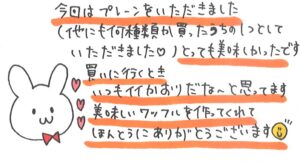 今回はプレーンをいただきました
(他にも何種類か買ったうちの1つとして
いただきました♡)とっても美味しかったです
買いに行くとき
いつもイイかおりだな〜と思ってます
美味しいワッフルを作ってくれて
ほんとうにありがとうございます